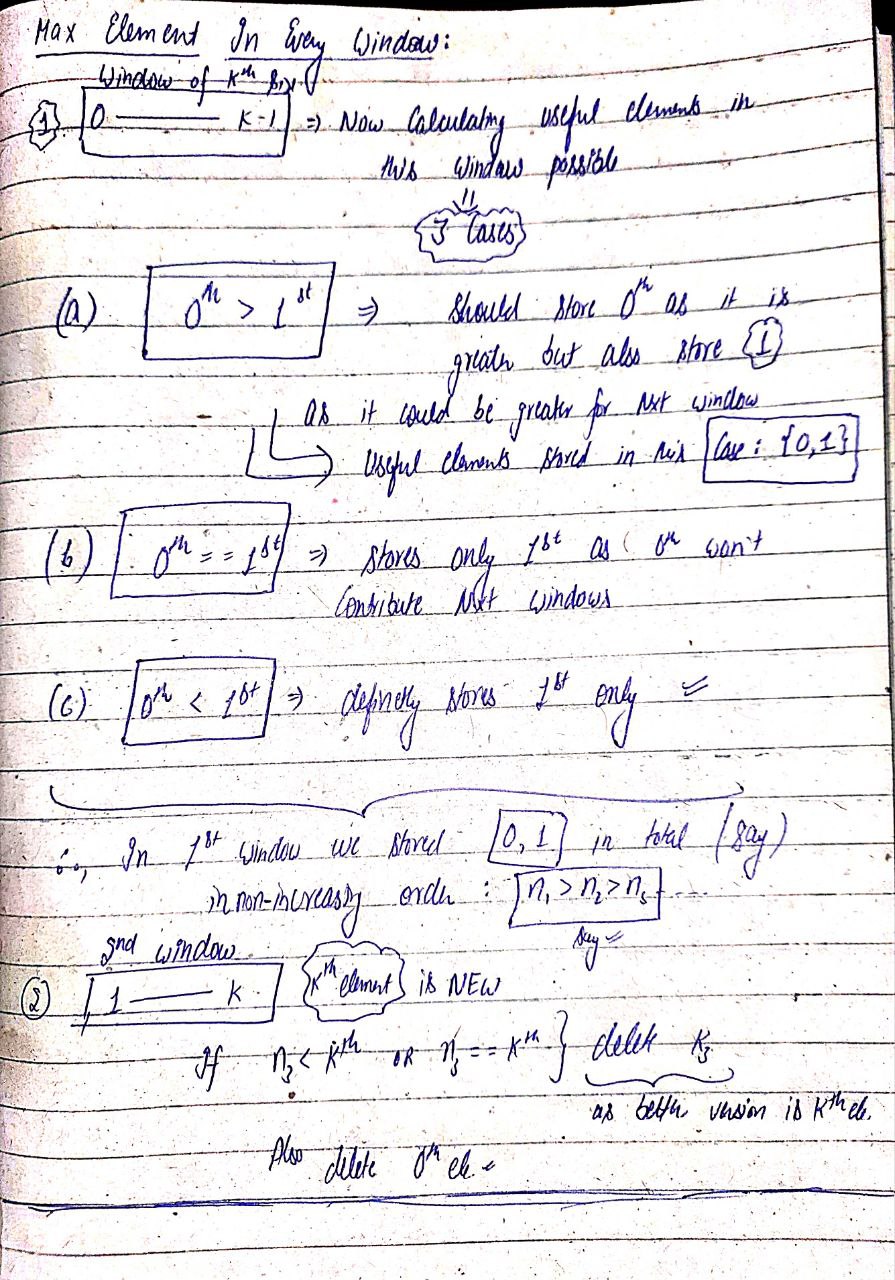 Max Element In Every Window:
Window of Kth Size
1 0 —— K-1 ⇒ Now Calculating useful elements in
this window possible
3 Cases
(a) 0th > 1st ⇒ Should store 0th as it is
greater but also store 1
as it could be greater for Nxt window
Useful elements stored in this Case: {0,1}
(b) 0th == 1st ⇒ Stores only 1st as 0th won't
Contribute Nxt windows
(c) 0th < 1st ⇒ definetly stores 1st only
∴, In 1st window we stored [0, 1] in total (say)
in non-increasing order : n₁ > n₂ > n₃ ....
say
2nd window
2 1 —— K Kth element is NEW
If n₃ < Kth OR n₃ == Kth } delete K₃
as better version is Kth ele.
Also delete 0th ele.